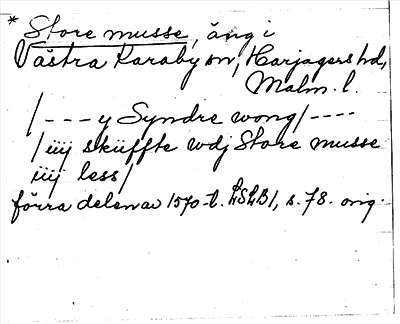 * Store musse, äng i
Västra Karaby sn, Harjagers hd,
Malm. l.
/--- y Syndre wong/----
/iiij skiffte wdj Store musse
iiij less/
förra delen av 1570-t. LSLB1, s. 78. orig.